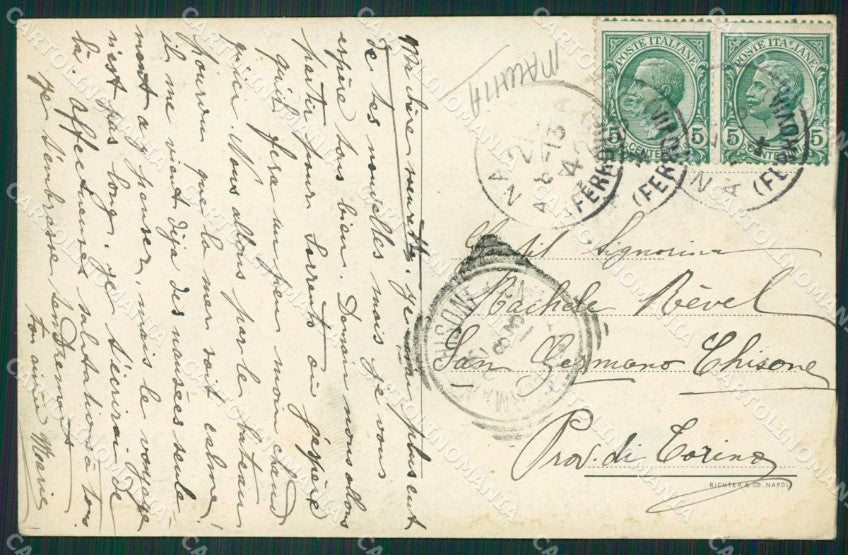 Ma chère
de tes nouvelles mais je vous
espère tous bien. Demain nous allons
partir pour Sorrento où j'espère
qu'il fera un peu moins chaud
Nous allons par le bateau
pourvu que la mer soit calme!
il me vient déja des nausées seule-
ment a y penser, mais le voyage
n'est pas long. Je t'écrirai de
là. Affectueuses salutations à tous
je t'embrasse tendrement
ton amie Marie
POSTE ITALIANE
5 CENTES 5
POSTE ITALIANE
5 CENTES 5
(FERROVIA)
(FERROVIA)
(FERROVIA)
Gentil Signorina
Rachele Rével
San Germano Chisone
Prov. di Torino
RICHTER & Co. NAPOLI
CARTOLINOMANIA